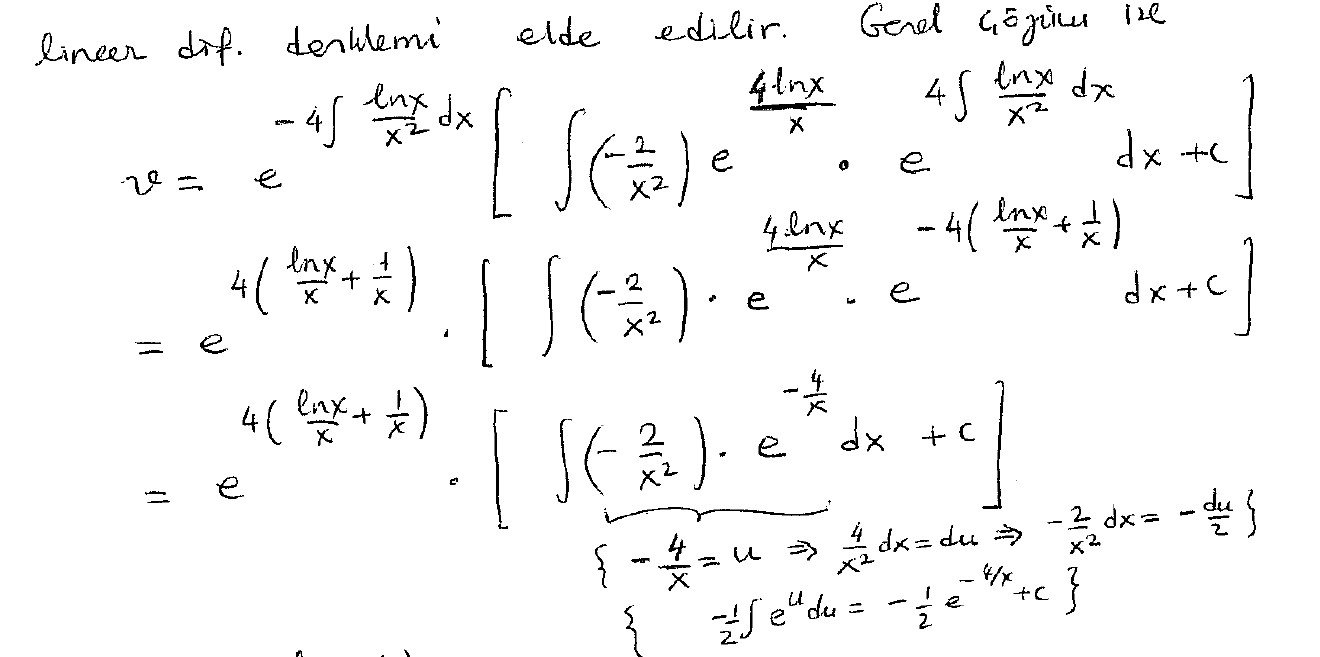 lineer dif. denklemi elde edilir. Genel çözümü ise
v = e^{-4∫ \frac{lnx}{x^2} dx} [ ∫ (-\frac{2}{x^2}) e^{\frac{4lnx}{x}} . e^{4∫ \frac{lnx}{x^2} dx} dx + c ]
= e^{4(\frac{lnx}{x} + \frac{1}{x})} . [ ∫ (-\frac{2}{x^2}) . e^{\frac{4.lnx}{x}} . e^{-4(\frac{lnx}{x} + \frac{1}{x})} dx + c ]
= e^{4(\frac{lnx}{x} + \frac{1}{x})} . [ ∫ (-\frac{2}{x^2}) . e^{-\frac{4}{x}} dx + c ]
{ -\frac{4}{x} = u ⇒ \frac{4}{x^2} dx = du ⇒ -\frac{2}{x^2} dx = -\frac{du}{2} }
{ -\frac{1}{2} ∫ e^u du = -\frac{1}{2} e^{-4/x} + c }